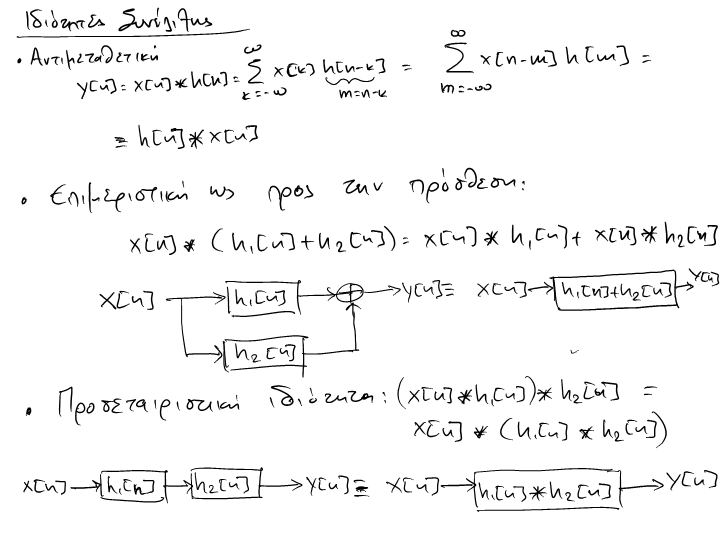 Ιδιότητες Συνέλιξης
• Αντιμεταθετική
y[n] = x[n] * h[n] = ∑_{k=-∞}^{∞} x[k] h[n-k] = ∑_{m=-∞}^{∞} x[n-m] h[m] =
m=n-k
= h[n] * x[n]
• Επιμεριστική ως προς την πρόσθεση:
x[n] * (h₁[n] + h₂[n]) = x[n] * h₁[n] + x[n] * h₂[n]
x[n] → h₁[n] → ⊕ → y[n] ≡ x[n] → h₁[n]+h₂[n] → y[n]
h₂[n]
• Προσεταιριστική ιδιότητα: (x[n] * h₁[n]) * h₂[n] =
x[n] * (h₁[n] * h₂[n])
x[n] → h₁[n] → h₂[n] → y[n] ≡ x[n] → h₁[n] * h₂[n] → y[n]